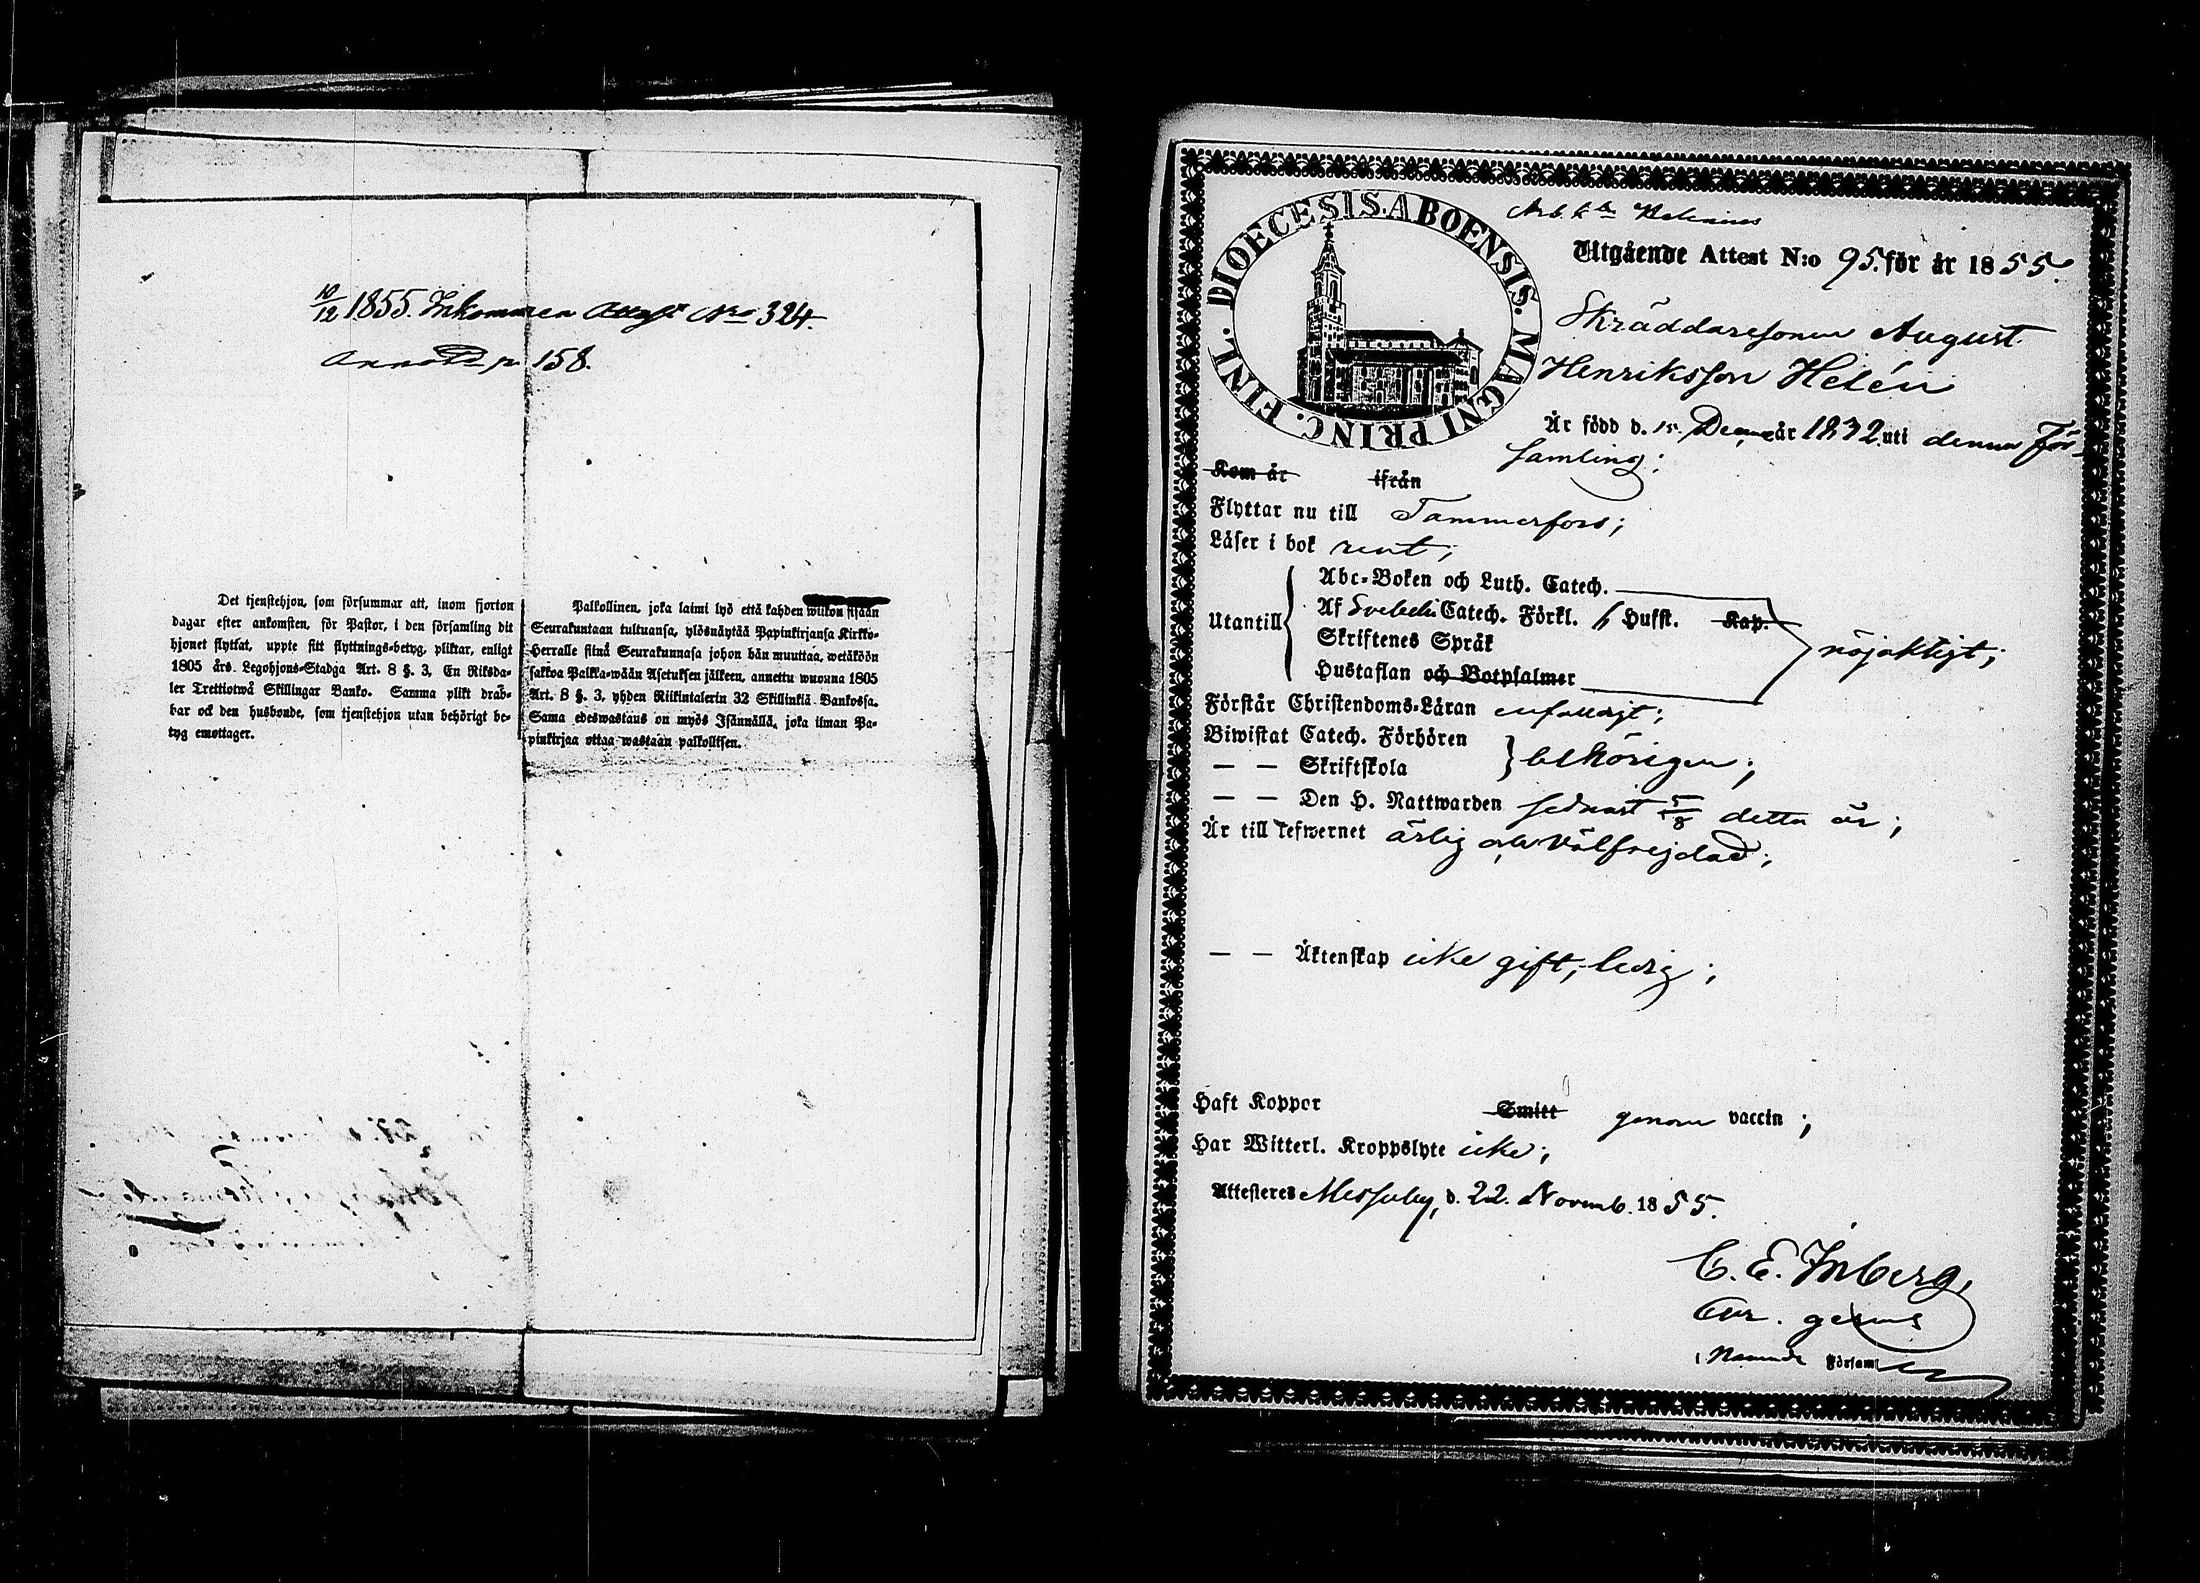 10/12 1855. Inkommen Attest No 324.
Annoterad p. 158.
Det tjenstehjon, som försummar att, inom fjorton
dagar efter ankomsten, för Pastor, i den församling dit
hjonet flyttat, uppte sitt flyttnings-betyg, pliktar, enligt
1805 års Legohjons-Stadga Art. 8 §. 3, En Riksda-
ler Trettiotwå Skillingar Banko. Samma plikt drab-
bar ock den husbonde, som tjenstehjon utan behörigt be-
tyg emottager.
Palkollinen, joka laimi lyö että kahden wiikon sisään
Seurakuntaan tultuansa, ylösnäytää Papinkirjansa Kirkko-
Herralle siinä Seurakunnasa johon hän muuttaa, wetäköön
sakkoa Palkka-wään Asetuksen jälkeen, annettu wuonna 1805
Art. 8 §. 3, yhden Riikintalerin 32 Skillinkiä Bankossa.
Sama edeswastaus on myös Isännällä, joka ilman Pa-
pinkirjaa ottaa wastaan palkollisen.
DIOECESIS. ABOENSIS. MAGNI PRINC. FINL.
Utgående Attest N:o 95. för år 1855.
Skräddaresonen August
Henriksson Helén
Är född d. 15. Decemb. år 1832. uti denna För-
samling;
Kom år ifrån
Flyttar nu till Tammerfors;
Läser i bok rent;
Utantill
Abc-Boken och Luth. Catech.
Af Svebelii Catech. Förkl. 6 Hufst. Kap.
Skriftenes Språk
Hustaflan och Botpsalmer
nöjaktigt;
Förstår Christendoms-Läran enfaldigt;
Biwistat Catech. Förhören
— — Skriftskola
behörigen;
— — Den H. Nattwarden sednast 5/8 detta år;
Är till Lefwernet ärlig och välfrejdad;
— — Äktenskap icke gift, ledig;
Haft Koppor Smitt genom vaccin;
Har Witterl. Kroppslyte icke;
Attesteras Messuby, d. 22. Novemb. 1855.
C. E. Inberg,
i Församl